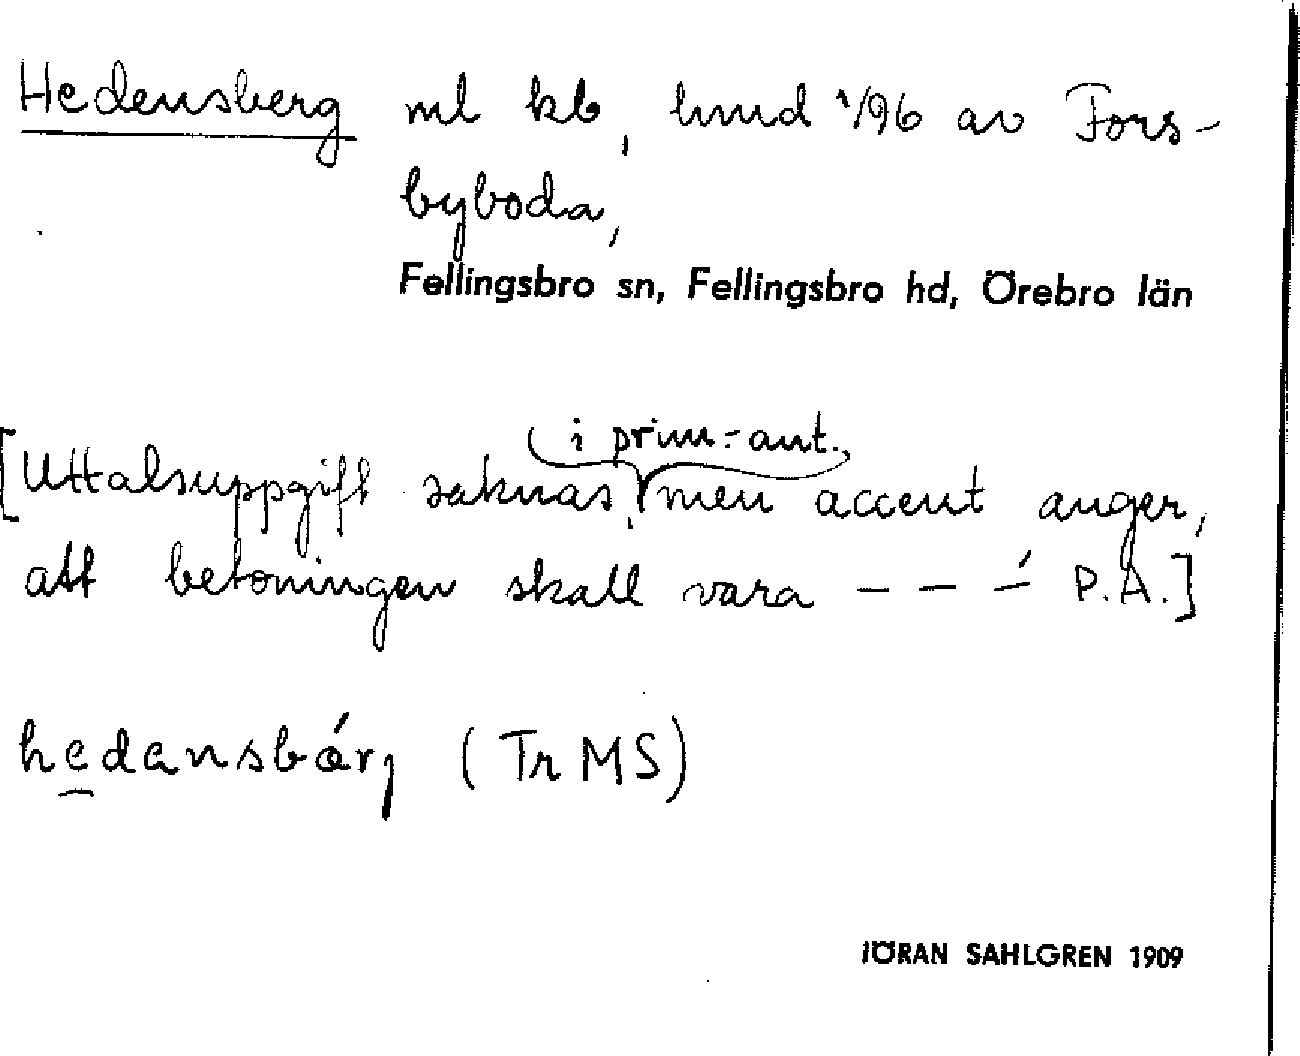 Hedensberg ml kb, hmd 1/96 av Fors-
byboda,
Fellingsbro sn, Fellingsbro hd, Örebro län
i prim.-ant.
[Uttalsuppgift saknas, men accent anger,
att betoningen skall vara – – –́ P.A.]
hedansbárj (Tr MS)
JÖRAN SAHLGREN 1909